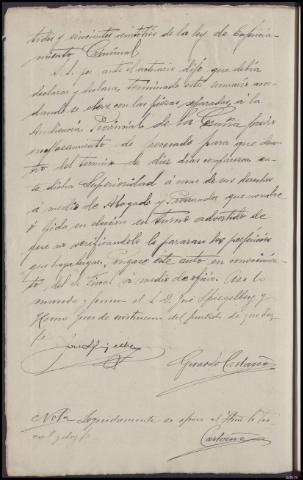 trés y seiscientos veintitrés de la ley de Enjuicia-
miento Criminal.
S. S. por ante el actuario dijo que debía
declarar y declara terminado este sumario man-
dando se eleve con las piezas separadas á la
Audiencia Provincial de La Coruña previo
emplazamiento de procesado para que den-
tro del termino de diez dias comparezca an-
te dicha Superioridad á usar de sus derechos
á medio de Abogado y Procurador que nombre
ó pida en turno advertido de
que no verificandolo le pararan los perjuicios
que haya lugar, pongase este auto en conocimien-
to del S. Fiscal á medio de oficio. Así lo
mando y firma el S. D. José Spiegelberg y
Horno juez de instruccion del partido de
José Spiegelberg
Gerardo
Nota Seguidamente se